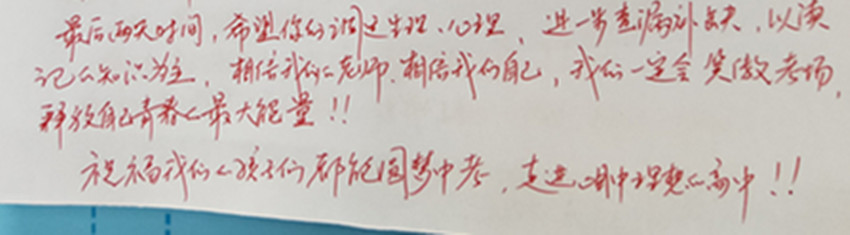 最后两天时间，希望你们调适生理、心理，进一步查漏补缺，以读
记知识为主，相信我们的老师，相信我们自己，我们一定会笑傲考场，
释放自己青春的最大能量！！
祝福我们的孩子们都能圆梦中考，走进心目中理想的高中！！